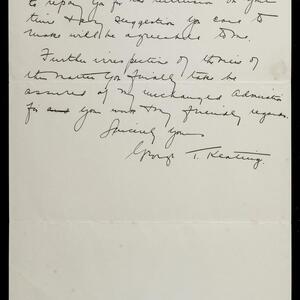 to repay you for the intrusion on your
time & any suggestion you care to
make will be agreeable to me.
Further irrespective of the view of
the matter you finally take be
assured of my unchanged admiration
for and your work & my friendly regards.
Sincerely yours
George T. Keating.